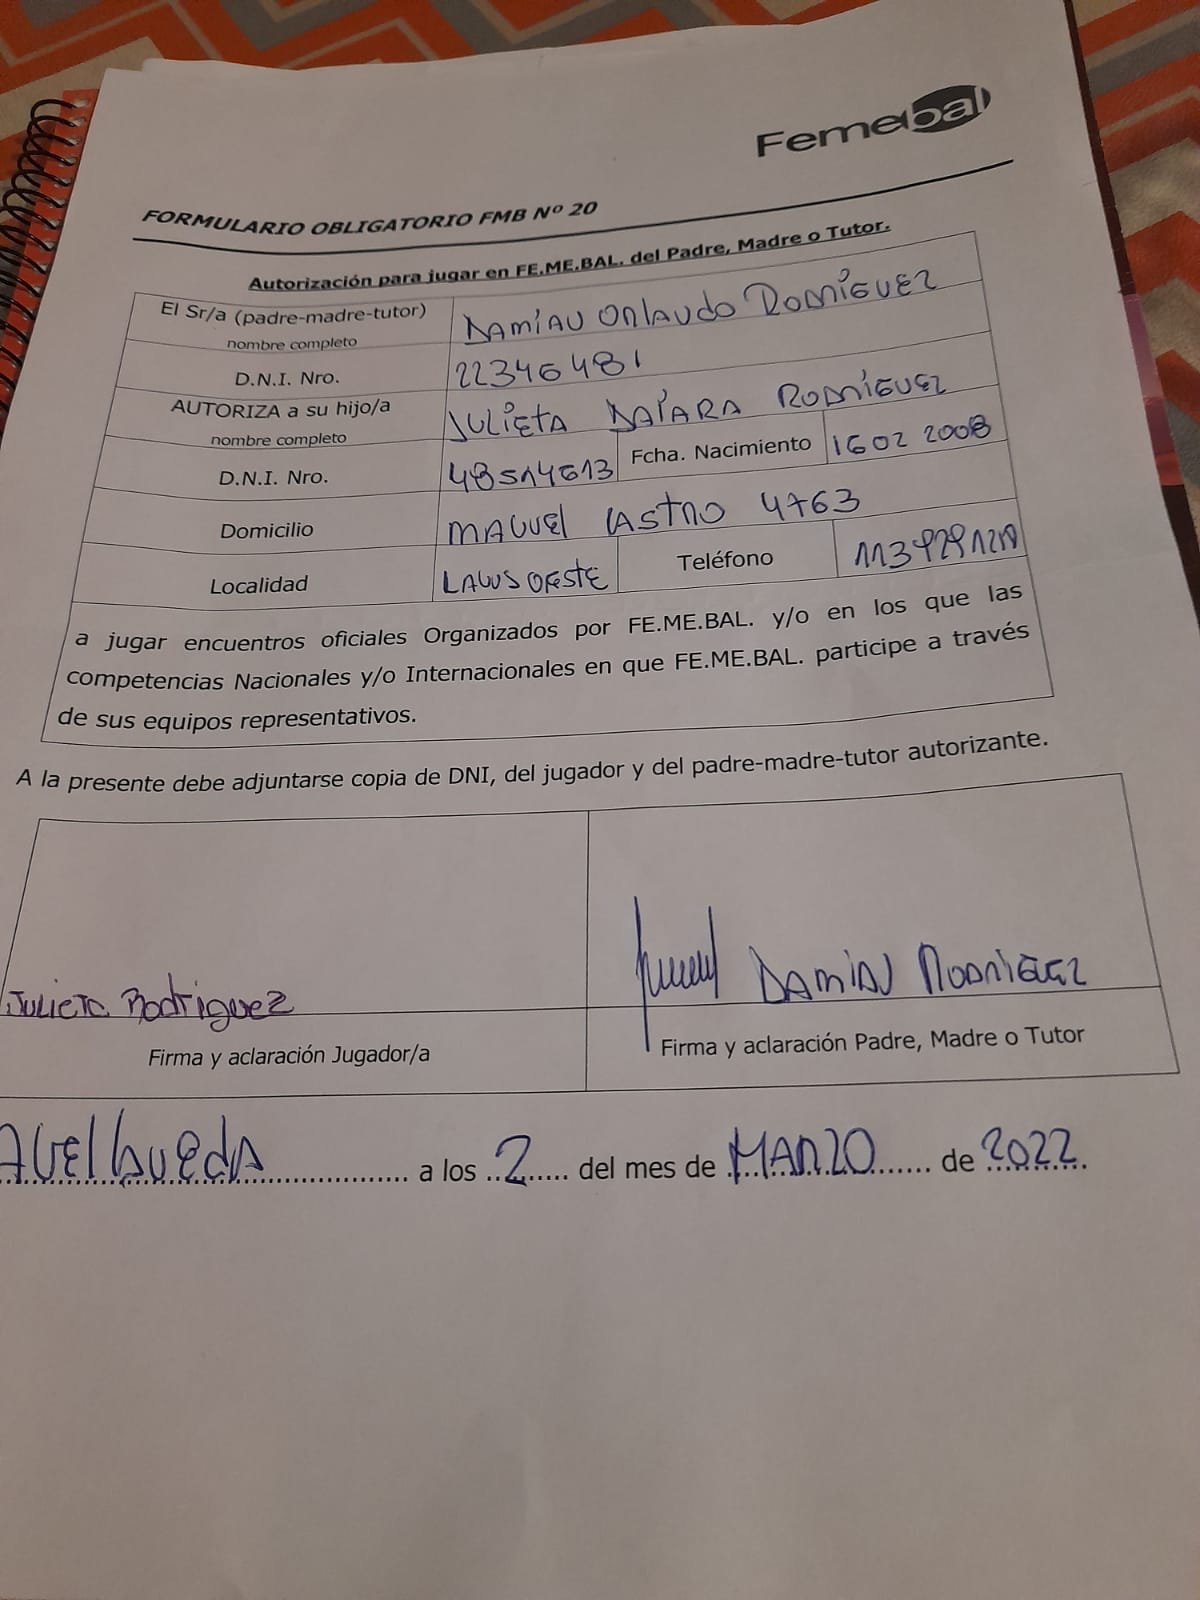 Femebal
FORMULARIO OBLIGATORIO FMB Nº 20
Autorización para jugar en FE.ME.BAL. del Padre, Madre o Tutor.
El Sr/a (padre-madre-tutor) nombre completo DAMIAN ORLANDO RODRÍGUEZ
D.N.I. Nro. 22346481
AUTORIZA a su hijo/a nombre completo JULIETA DAIARA RODRÍGUEZ
D.N.I. Nro. 48514613 Fcha. Nacimiento 16 02 2008
Domicilio MANUEL CASTRO 4763
Localidad LANUS OESTE Teléfono
a jugar encuentros oficiales Organizados por FE.ME.BAL. y/o en los que las
competencias Nacionales y/o Internacionales en que FE.ME.BAL. participe a través
de sus equipos representativos.
A la presente debe adjuntarse copia de DNI, del jugador y del padre-madre-tutor autorizante.
Julieta Rodriguez DAMIAN RODRIGUEZ
Firma y aclaración Jugador/a Firma y aclaración Padre, Madre o Tutor
Avellaneda a los 2 del mes de MARZO de 2022